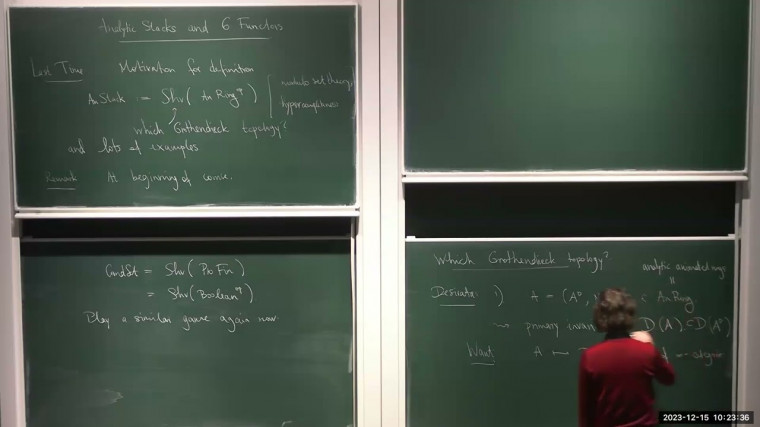 Analytic Stacks and 6 Functors
Last Time Motivation for definition
AnStack := Shv( AnRing^op )
modulo set theory,
hypercompleteness
which Grothendieck topology?
and lots of examples
Remark At beginning of course.
CondSet = Shv( ProFin )
= Shv( Boolean^op )
Play a similar game again now
Which Grothendieck topology?
analytic animated rings
Desirata: 1) A = (A^▷, ∈ AnRing
⇝ primary D(A) ⊂ D(A^▷)
Want A ↦
2023-12-15 10:23:36